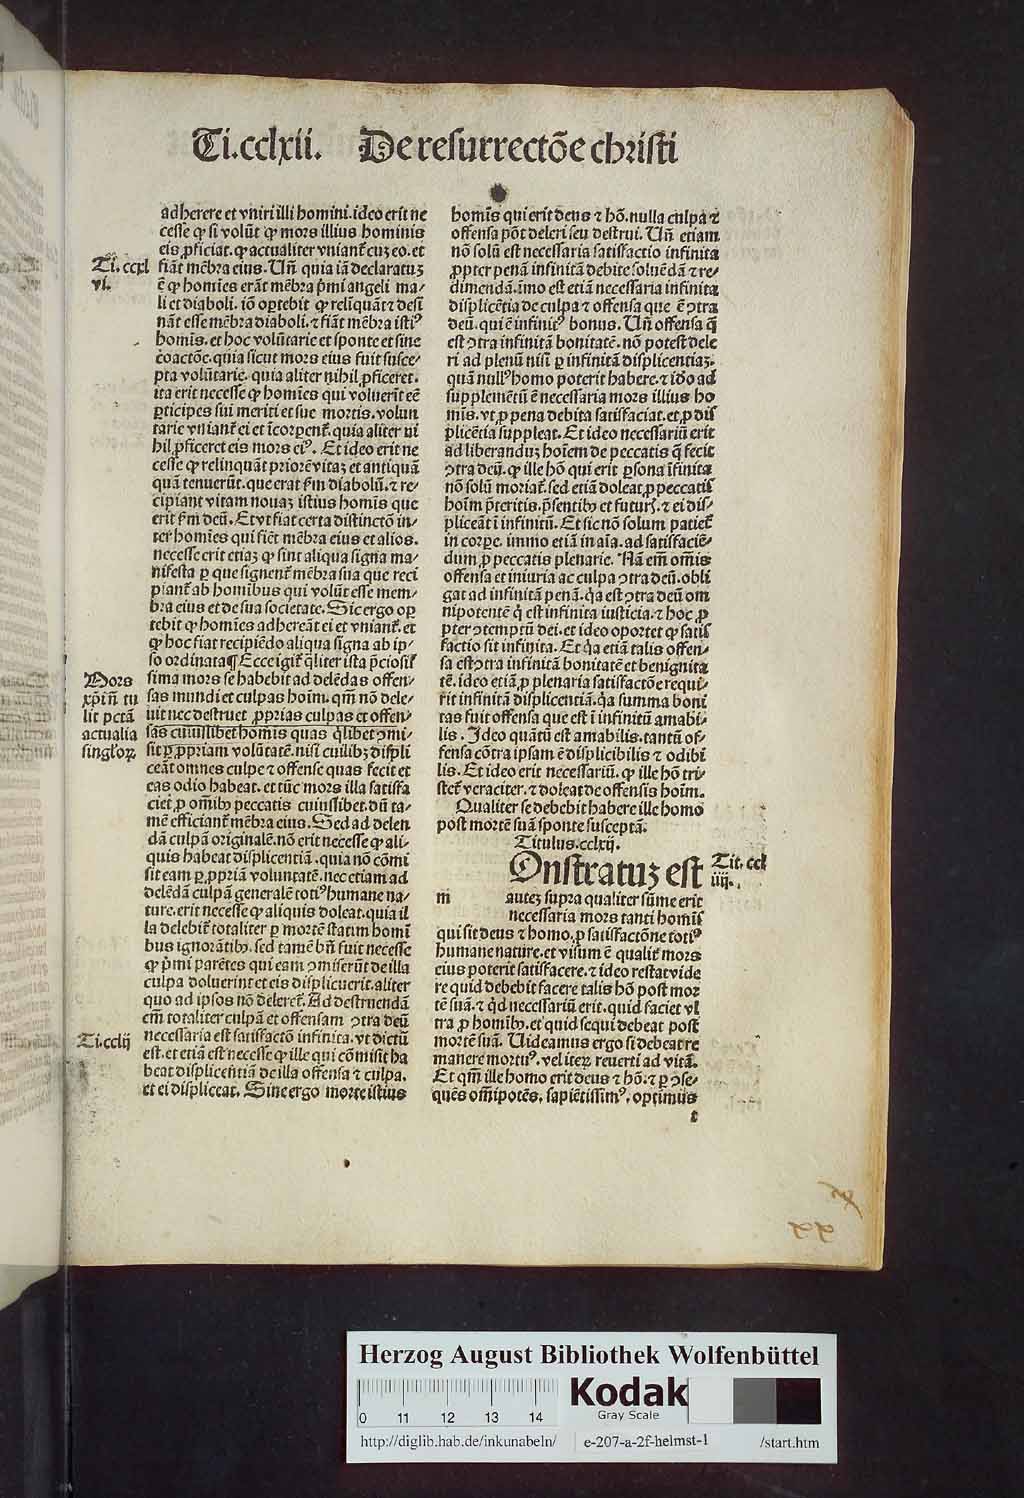 Ti.cclxii. De resurrectõe christi
adherere et vniri illi homini.ideo erit ne
cesse ꝙ si volũt ꝙ mors illius hominis
eis ꝓficiat.ꝙ actualiter vniant̃ cuꝫ eo.et
Ti.ccxl
vi.
fiãt mẽbra eius. Uñ quia iã declaratuꝫ
ẽ ꝙ homĩes erãt mẽbra p̃mi angeli ma/
li et diaboli.iõ oꝑtebit ꝙ relĩquãt ⁊ desi
nãt esse mẽbra diaboli.⁊ fiãt mẽbra istiꝰ
homĩs.et hoc volũtarie et sponte et sine
coactõe.quia sicut mors eius fuit susce/
pta volũtarie.quia aliter nihil ꝓficeret.
ita erit necesse ꝙ homĩes qui voluerĩt eẽ
ꝑticipes sui meriti et sue mortis.volun
tarie vniant̃ ei et ĩcorporent̃.quia aliter ni
hil ꝓficeret eis mors eiꝰ. Et ideo erit ne
cesse ꝙ relinquãt priorẽ vitaꝫ et antiquã
quã tenuerũt.que erat s̃m diabolũ.⁊ re/
cipiant vitam nouaꝫ istius homĩs que
erit s̃m deũ. Et vt fiat certa distinctõ in/
ter homĩes qui fiẽt mẽbra eius et alios.
necesse erit etiaꝫ ꝙ sint aliqua signa ma/
nifesta ꝑ que signent̃ mẽbra sua que reci
piant̃ ab homĩbus qui volũt esse mem/
bra eius et de sua societate. Sic ergo oꝑ
tebit ꝙ homĩes adhereãt ei et vniant̃.et
ꝙ hoc fiat recipiẽdo aliqua signa ab ip/
so ordinata¶ Ecce igit̃ q̃liter ista p̃ciosis̃
Mors
xp̃i nõ tu
lit pctã
actualia
singl'oꝝ
sima mors se habebit ad delẽdas offen/
sas mundi et culpas hoĩm.qm̃ nõ dele/
uit nec destruet ꝓprias culpas et offen/
sas cuiuslibet homĩs quas q̃libet ↄmi/
sit ꝑ ꝓpriam volũtatẽ.nisi cuilibꝫ displi
ceãt omnes culpe ⁊ offense quas fecit et
eas odio habeat.et tũc mors illa satisfa
ciet ꝓ om̃ibꝫ peccatis cuiuslibet.dũ ta/
mẽ efficiant̃ mẽbra eius. Sed ad delen
dã culpã originalẽ.nõ erit necesse ꝙ ali/
quis habeat displicentiã.quia nõ cõmi
sit eam ꝑ ꝓpriã voluntatẽ.nec etiam ad
delẽdã culpã generalẽ totiꝰ humane na/
ture.erit necesse ꝙ aliquis doleat.quia il
la delebit̃ totaliter ꝑ mortẽ statim homĩ
bus ignorãtibꝫ.sed tamẽ bñ fuit necesse
ꝙ p̃mi parẽtes qui eam ↄmiserũt de illa
culpa doluerint et eis displicuerit.aliter
quo ad ipsos nõ deleret̃. Ad destruendã
em̃ totaliter culpã et offensam ↄtra deũ
Ti.cclij
necessaria est satisfactõ infinita.vt dictũ
est.et etiã est necesse ꝙ ille qui cõmisit ha
beat displicentiã de illa offensa ⁊ culpa.
et ei displiceat. Sine ergo morte istius
homĩs qui erit deus ⁊ hõ.nulla culpa ⁊
offensa põt deleri seu destrui. Uñ etiam
nõ solũ est necessaria satisfactio infinita
ꝓpter penã infinitã debite soluẽdã ⁊ re/
dimendã.ĩmo est etiã necessaria infinita
displicẽtia de culpa ⁊ offensa que ẽ ↄtra
deũ.qui ẽ infinitꝰ bonus. Uñ offensa q̃
est ↄtra infinitã bonitatẽ.nõ potest dele
ri ad plenũ nisi ꝑ infinitã displicentiaꝫ.
quã nullꝰ homo poterit habere.⁊ iõo ad
supplemẽtũ ẽ necessaria mors illius ho
mĩs.vt ꝓ pena debita satisfaciat.et ꝓ dis
plicẽtia suppleat. Et ideo necessariũ erit
ad liberanduꝫ hoĩem de peccatis q̃ fecit
ↄtra deũ.ꝙ ille hõ qui erit ꝑsona ĩfinita
nõ solũ moriat̃.sed etiã doleat ꝓ peccatis
hoĩm p̃teritis.p̃sentibꝫ et futuris.⁊ ei dis/
pliceãt ĩ infinitũ. Et sic nõ solum patiet̃
in corpe.immo etiã in aĩa.ad satisfaciẽ/
dum ꝓ peccatis plenarie. Nã em̃ om̃is
offensa et iniuria ac culpa ↄtra deũ.obli
gat ad infinitã penã.q̃a est ↄtra deũ om
nipotentẽ q̃ est infinita iusticia.⁊ hoc ꝓ
pter ↄtemptũ dei.et ideo oportet ꝙ satis
factio sit infinita. Et q̃a etiã talis offen/
sa est ↄtra infinitã bonitatẽ et benignita
tẽ.ideo etiã ꝓ plenaria satisfactõe requi/
rit infinitã displicentiã.q̃a summa boni
tas fuit offensa que est ĩ infinitũ amabi/
lis. Ideo quãtũ est amabilis.tantũ of/
fensa cõtra ipsam ẽ displicibilis ⁊ odibi
lis. Et ideo erit necessariũ.ꝙ ille hõ tri/
stet̃ veraciter.⁊ doleat de offensis hoĩm.
Qualiter se debebit habere ille homo
post mortẽ suã sponte susceptã.
Titulus.cclxij.
Tit.ccl
iiij.
Onstratuꝫ est
m
auteꝫ supra qualiter sũme erit
necessaria mors tanti homĩs
qui sit deus ⁊ homo.ꝓ satisfactõne totiꝰ
humane nature.et visum ẽ qualit̃ mors
eius poterit satisfacere.⁊ ideo restat vide
re quid debebit facere talis hõ post mor
tẽ suã.⁊ q̃d necessariũ erit.quid faciet vl
tra ꝓ homĩbꝫ.et quid sequi debeat post
mortẽ suã. Uideamus ergo si debeat re
manere mortuꝰ.vel iteꝝ reuerti ad vitã.
Et qm̃ ille homo erit deus ⁊ hõ.⁊ ꝑ ↄse/
quẽs om̃ipotẽs.sapiẽtissimꝰ.optimus
t
Herzog August Bibliothek Wolfenbüttel
0 11 12 13 14
Kodak
Gray Scale
http://diglib.hab.de/inkunabeln/ e-207-a-2f-helmst-1 /start.htm